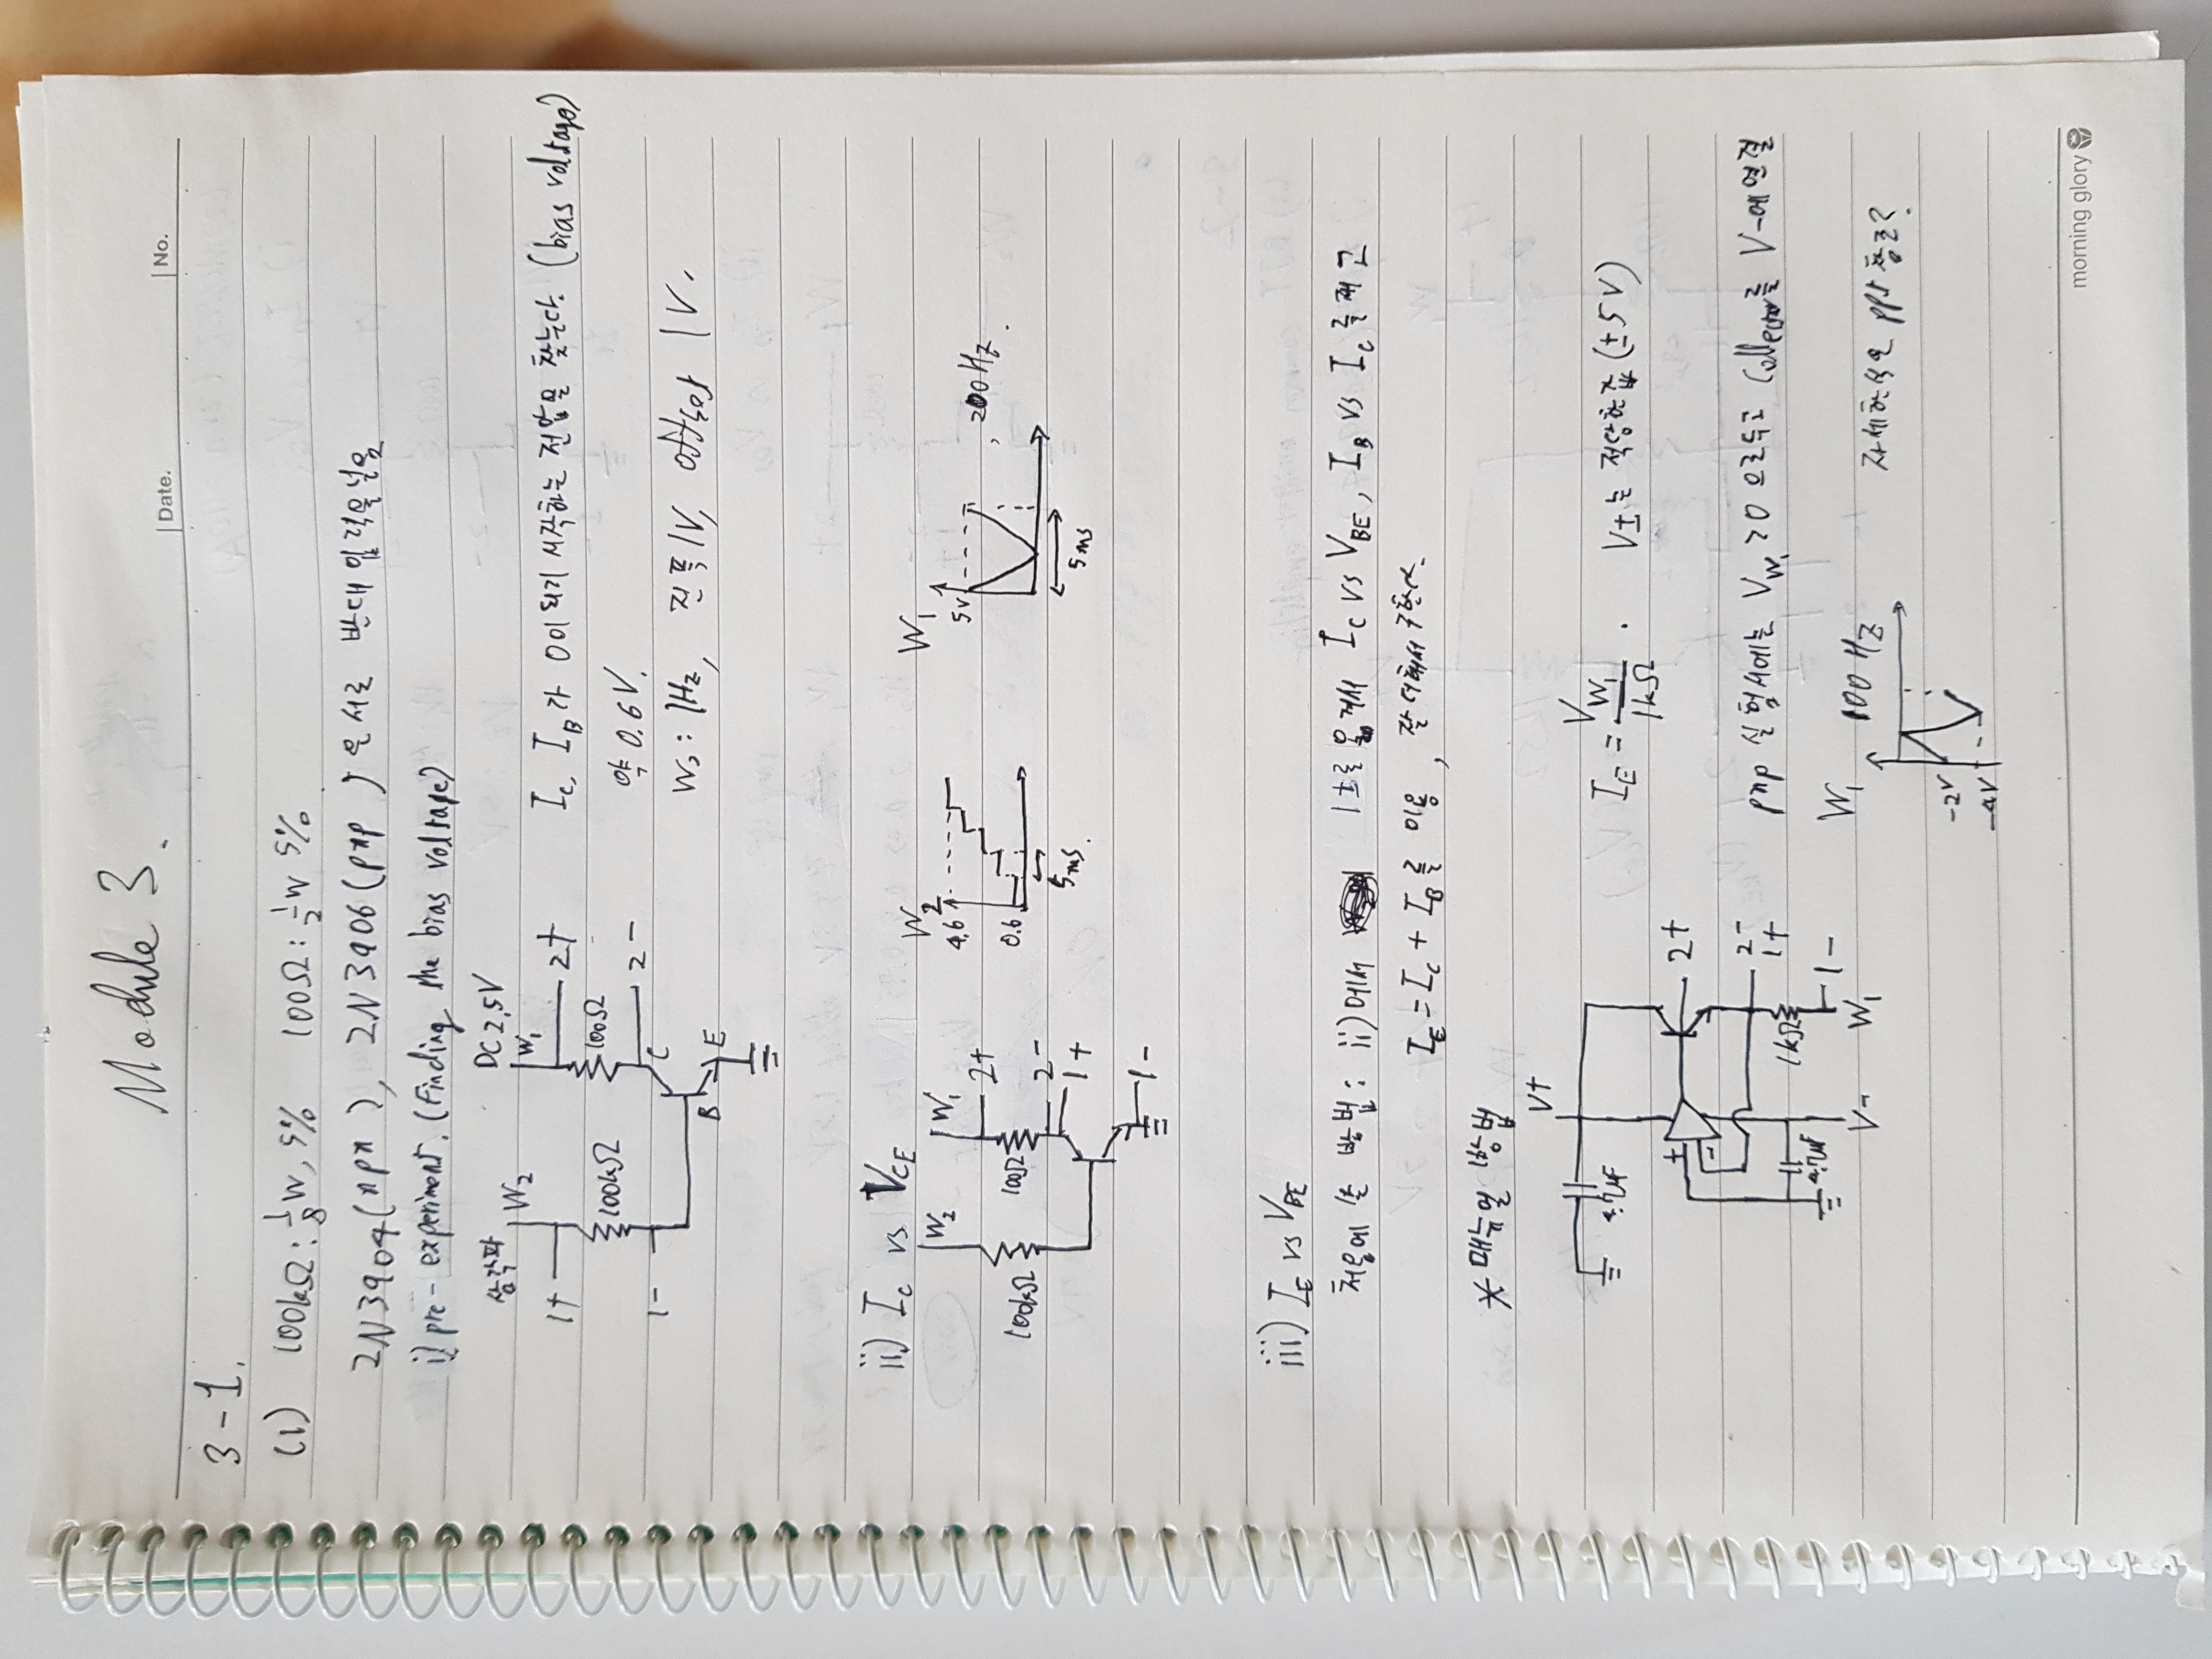 Module 3.
Date.
No.
3-1.
(1) 100kΩ: 1/8 W, 5% 100Ω: 1/2 W 5%
2N3904(npn), 2N3906(pnp)은 서로 반대 입력을 넣음
i) pre-experiment. (Finding the bias voltage)
삼각파 W2
DC 2.5V
W1
1+
2+
100kΩ
100Ω
1-
2-
C
B
E
Ic, IB가 0이 되기 시작하는 전압을 찾는다. (bias voltage)
약 0.6V.
W2: 1Hz, 진폭 1V, offset 1V.
ii) Ic vs VCE
W2
W1
2+
100kΩ
100Ω
2-
1+
1-
W2
4.6
0.6
5ms.
W1
5V
5ms
, 200Hz.
iii) IE vs VBE
처음에 쓴 방법: ii)에서 1±를 옮겨서 Ic vs VBE, IB vs Ic를 재고
IE = Ic + IB를 이용, 잘 더해서 구한다.
* 매뉴얼 방법
V+
4.7uF
+
-
2+
2-
1+
1kΩ
4.7uF
1-
V-
W1
IE = VW1/1kΩ . V±는 적당한 값 (±5V)
pnp 실험시에는 VW1 >0 으로 두고 Collector를 V-에 연결
W1
100 Hz
-2V
-4V
자세한 식은 ppt 참조?
morning glory